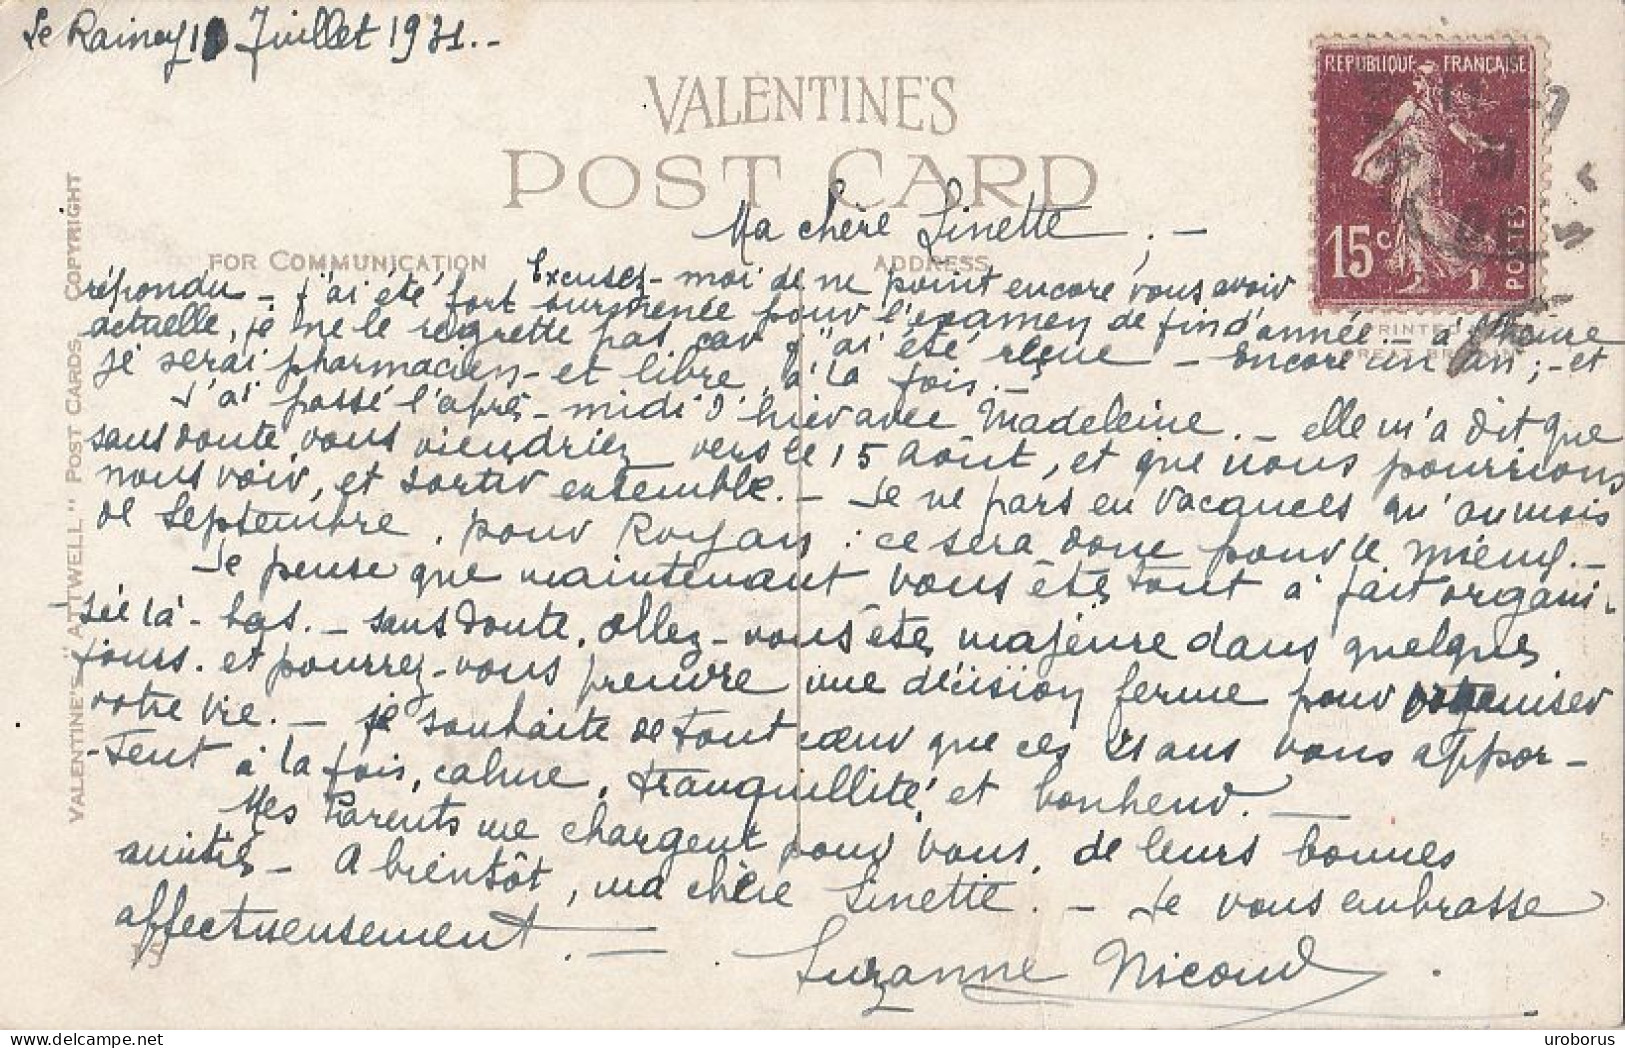 Le Rainey 10 Juillet 1931.-
VALENTINE'S
POST CARD
REPUBLIQUE FRANÇAISE
15c
POSTES
FOR COMMUNICATION
ADDRESS
PRINTED
VALENTINE'S "ATTWELL" POST CARDS, COPYRIGHT
Ma chère Linette, -
Excusez-moi de ne point encore vous avoir
répondu - j'ai été fort surmenée pour l'examen de fin d'année - à l'heure
actuelle, je ne le regrette pas car j'ai été reçue - encore un an; - et
je serai pharmacien - et libre, à la fois. -
J'ai passé l'après-midi d'hier avec Madeleine. - elle m'a dit que
sans doute vous viendriez vers le 15 Août, et que nous pourrions
nous voir, et sortir ensemble. - Je ne pars en vacances qu'au mois
de Septembre, pour Royan : ce sera donc pour le mieux. -
Je pense que maintenant vous êtes tout à fait organi-
sée là-bas. - sans doute, allez-vous êtes majeure dans quelques
jours. et pourrez-vous prendre une décision ferme pour organiser
votre vie. - je souhaite de tout cœur que ces 21 ans vous appor-
-tent à la fois, calme, tranquillité, et bonheur. -
Mes Parents me chargent pour vous, de leurs bonnes
amitiés - A bientôt, ma chère Linette. - Je vous embrasse
affectueusement. =
Suzanne Nicoud.
uroborus